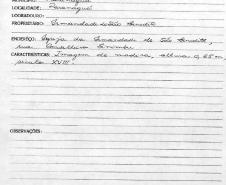 LOCALIDADE: Paranaguá
LOGRADOURO:
PROPRIETÁRIO: Irmandade de São Benedito
ENDEREÇO: Igreja da Irmandade de São Benedito,
rua Conselheiro Sinimbu
CARACTERÍSTICAS: Imagem de madeira, altura 0,65 m
século XVIII.
OBSERVAÇÕES: